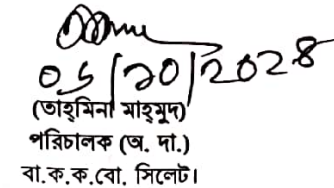 ০৬/১০/২০২৪
(তাহমিনা মাহমুদ)
পরিচালক (অ. দা.)
বা.ক.ক.বো. সিলেট।